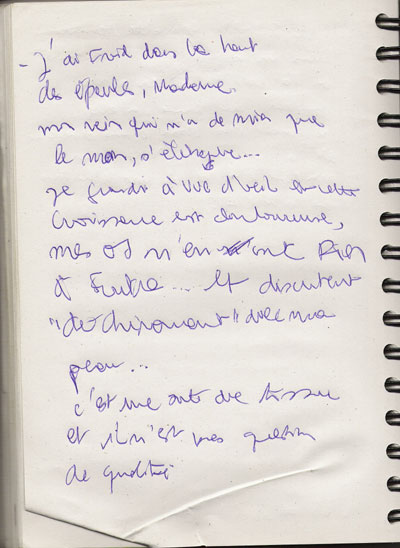 - J'ai froid dans le haut
des épaules, Madame.
ma rein qui n'a de moins que
le mon, s'étire...
je grandis à vue d'oeil et cette
croissance est douloureuse,
mes os n'en ont rien
à foutre... et discutent
"déchirement" avec ma
peau...
c'est une sorte de tissu
et il n'est pas question
de qualité